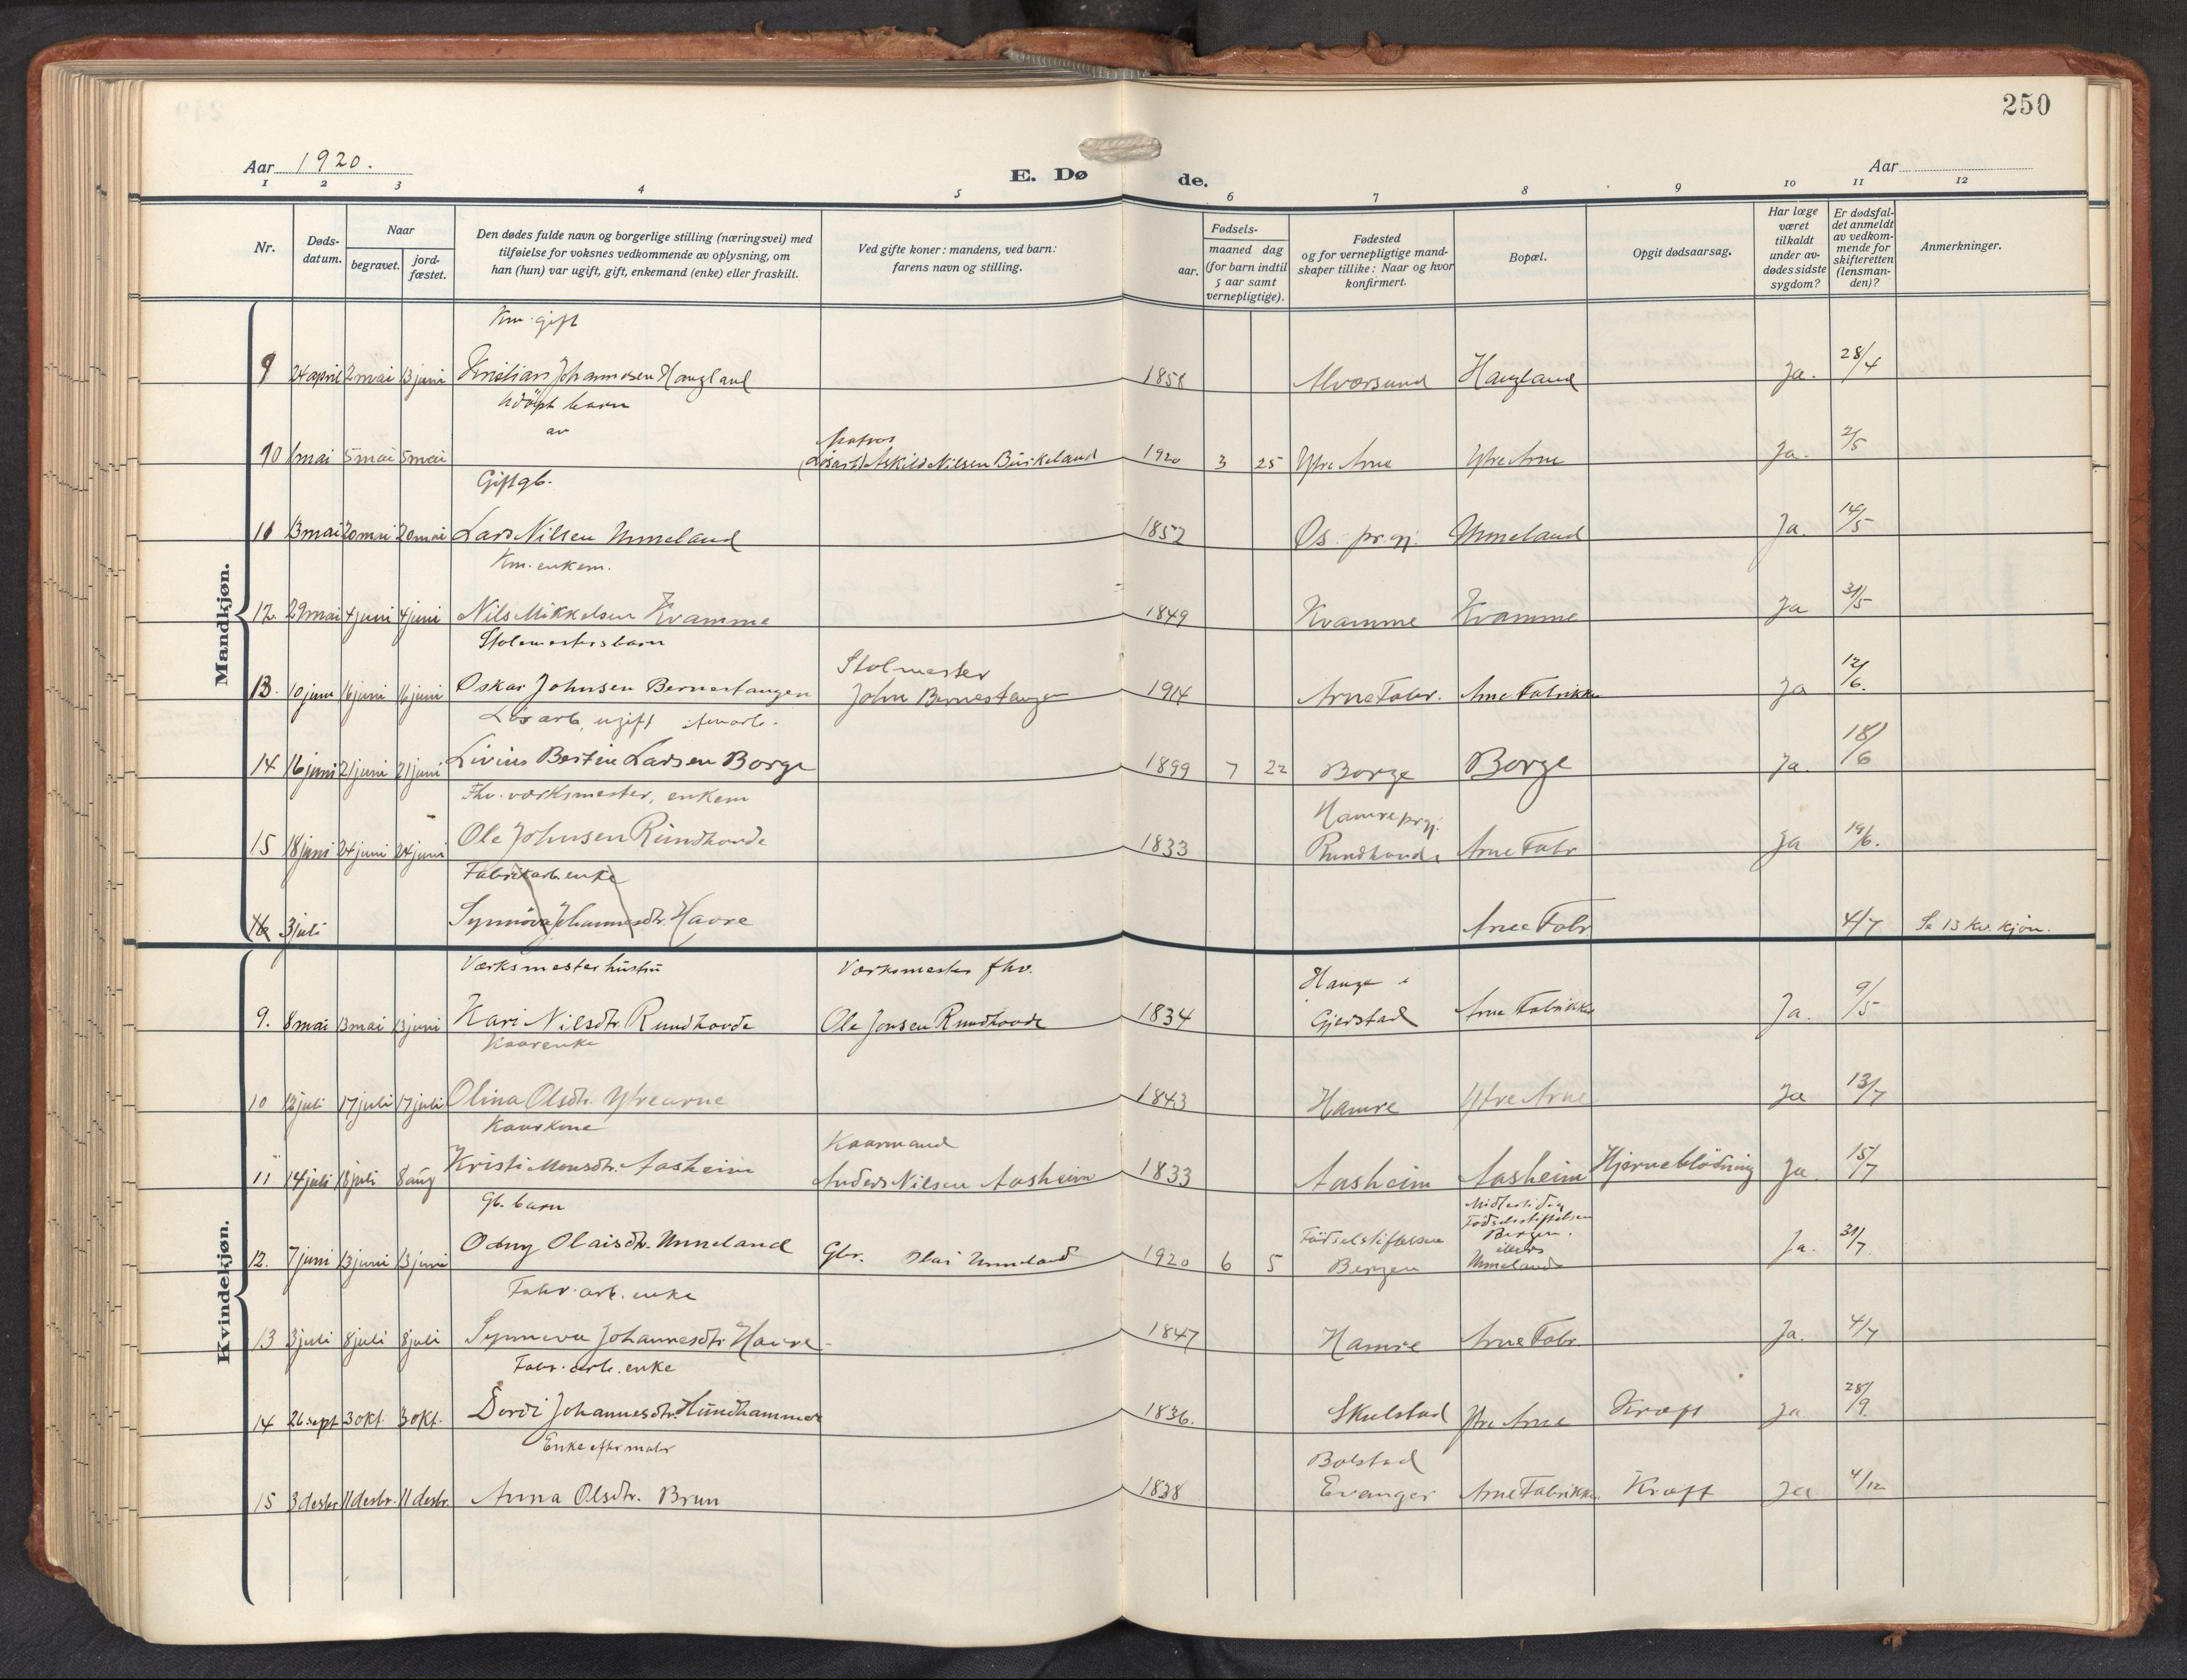 250
Aar 1920.
E. Døde.
Aar
1 2 3 4 5 6 7 8 9 10 11 12
Nr.
Dødsdatum.
Naar
begravet.
jordfæstet.
Den dødes fulde navn og borgerlige stilling (næringsvei) med
tilføielse for voksnes vedkommende av oplysning, om
han (hun) var ugift, gift, enkemand (enke) eller fraskilt.
Ved gifte koner: mandens, ved barn:
farens navn og stilling.
Fødsels-
aar.
maaned dag
(for barn indtil
5 aar samt
vernepligtige).
Fødested
og for vernepligtige mand-
skaper tillike: Naar og hvor
konfirmert.
Bopæl.
Opgit dødsaarsag.
Har læge
været
tilkaldt
under av-
dødes sidste
sygdom?
Er dødsfal-
det anmeldt
av vedkom-
mende for
skifteretten
(lensman-
den)?
Anmerkninger.
Mandkjøn.
Km. gift
9 24 april 2 mai 13 juni Kristian Johannesen Haugland 1858 Alversund Haugland Ja. 28/4
Udöpt barn
av
Matros
10 1 mai 5 mai 5 mai (Lösarb) Askild Nilsen Birkeland 1920 3 25 Ytre Arne Ytre Arne Ja. 2/5
Gift gb.
11 13 mai 20 mai 20 mai Lars Nilsen Unneland 1852 Os prgj. Unneland Ja. 14/5
Km. enkem.
12. 29 mai 4 juni 4 juni Nils Mikkelsen Kvamme 1849 Kvamme Kvamme Ja 31/5
Stolemestersbarn
Stolmester
13. 10 juni 16 juni 16 juni Oskar Johnsen Bernestangen John Bernestangen 1914 Arne Fabr. Arne Fabrikker Ja 12/6.
Lös arb, ugift
14 16 juni 21 juni 21 juni Livius Bertin Larsen Borge 1899 7 22 Borge Borge Ja. 18/6
Fhv. værksmester, enkem
Hamre prgj.
15 18 juni 24 juni 24 juni Ole Johnsen Rundhovde 1833 Rundhovde Arne Fabr Ja 19/6.
Fabrikarb. enke
16 3 juli Synnöva Johannesdtr. Havre Arne Fabr. 4/7 Se 13 kv. kjøn.
Kvindekjøn.
Værksmesterhustru Værksmester fhv. Hauge i
9. 8 mai 13 mai 13 juni Kari Nilsdtr. Rundhovde Ole Jonsen Rundhovde 1834 Gjerstad Arne Fabrikker Ja. 9/5
Kaarenke
10 12 juli 17 juli 17 juli Olina Olsdtr. Ytrearne 1843 Hamre Ytre Arne Ja 13/7
Kaarkone Kaarmand
11 14 juli 18 juli 8 aug Kristi Monsdtr. Aasheim Anders Nilsen Aasheim 1833 Aasheim Aasheim Hjerneblödning Ja. 15/7
Gb. barn
Midlertidig
Födselsstiftelsen
Bergen.
ellers
12. 7 juni 13 juni 13 juni Odny Olaisdtr. Unneland Gbr. Olai Unneland 1920 6 5 Födselstiftelsen Bergen Unneland Ja. 31/7.
Fabr. arb. enke
13 3 juli 8 juli 8 juli Synneva Johannesdtr Havre 1847 Hamre Arne Fabr. Ja. 4/7
Fabr. arb. enke
14 26 sept 3 okt. 3 okt. Dordi Johannesdtr. Hundhammer 1836. Skulstad Ytre Arne Kræft Ja 28/9.
Enke efter
Bolstad
15 3 desbr 11 desbr. 11 desbr. Anna Olsdtr. Brun 1838 Evanger Arne Fabrikker Kræft Ja 4/12